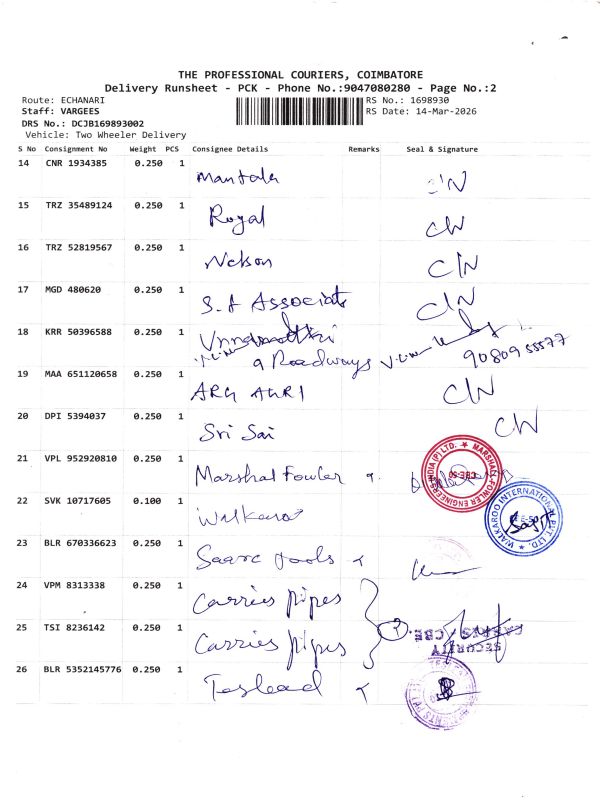 THE PROFESSIONAL COURIERS, COIMBATORE
Delivery Runsheet - PCK - Phone No.:9047080280 - Page No.:2
Route: ECHANARI RS No.: 1698930
Staff: VARGEES RS Date: 14-Mar-2026
DRS No.: DCJB169893002
Vehicle: Two Wheeler Delivery
S No Consignment No Weight PCS Consignee Details Remarks Seal & Signature
14 CNR 1934385 0.250 1 C/N
15 TRZ 35489124 0.250 1 Royal C/N
16 TRZ 52819567 0.250 1 Nelson C/N
17 MGD 480620 0.250 1 S.A Associats C/N
18 KRR 50396588 0.250 1
Roadways 9080955577
19 MAA 651120658 0.250 1 ARG AGRI C/N
20 DPI 5394037 0.250 1 Sri Sai C/N
21 VPL 952920810 0.250 1 Marshal Fowler
MARSHALL-FOWLER ENGINEERS INDIA (P) LTD. ★ CBE-50
22 SVK 10717605 0.100 1 Walkaroo
WALKAROO INTERNATIONAL PVT. LTD. ★
23 BLR 670336623 0.250 1 Saarc tools
24 VPM 8313338 0.250 1 Carries pipes
25 TSI 8236142 0.250 1 Carries pipes 2
SECURITY
CBE
26 BLR 5352145776 0.250 1